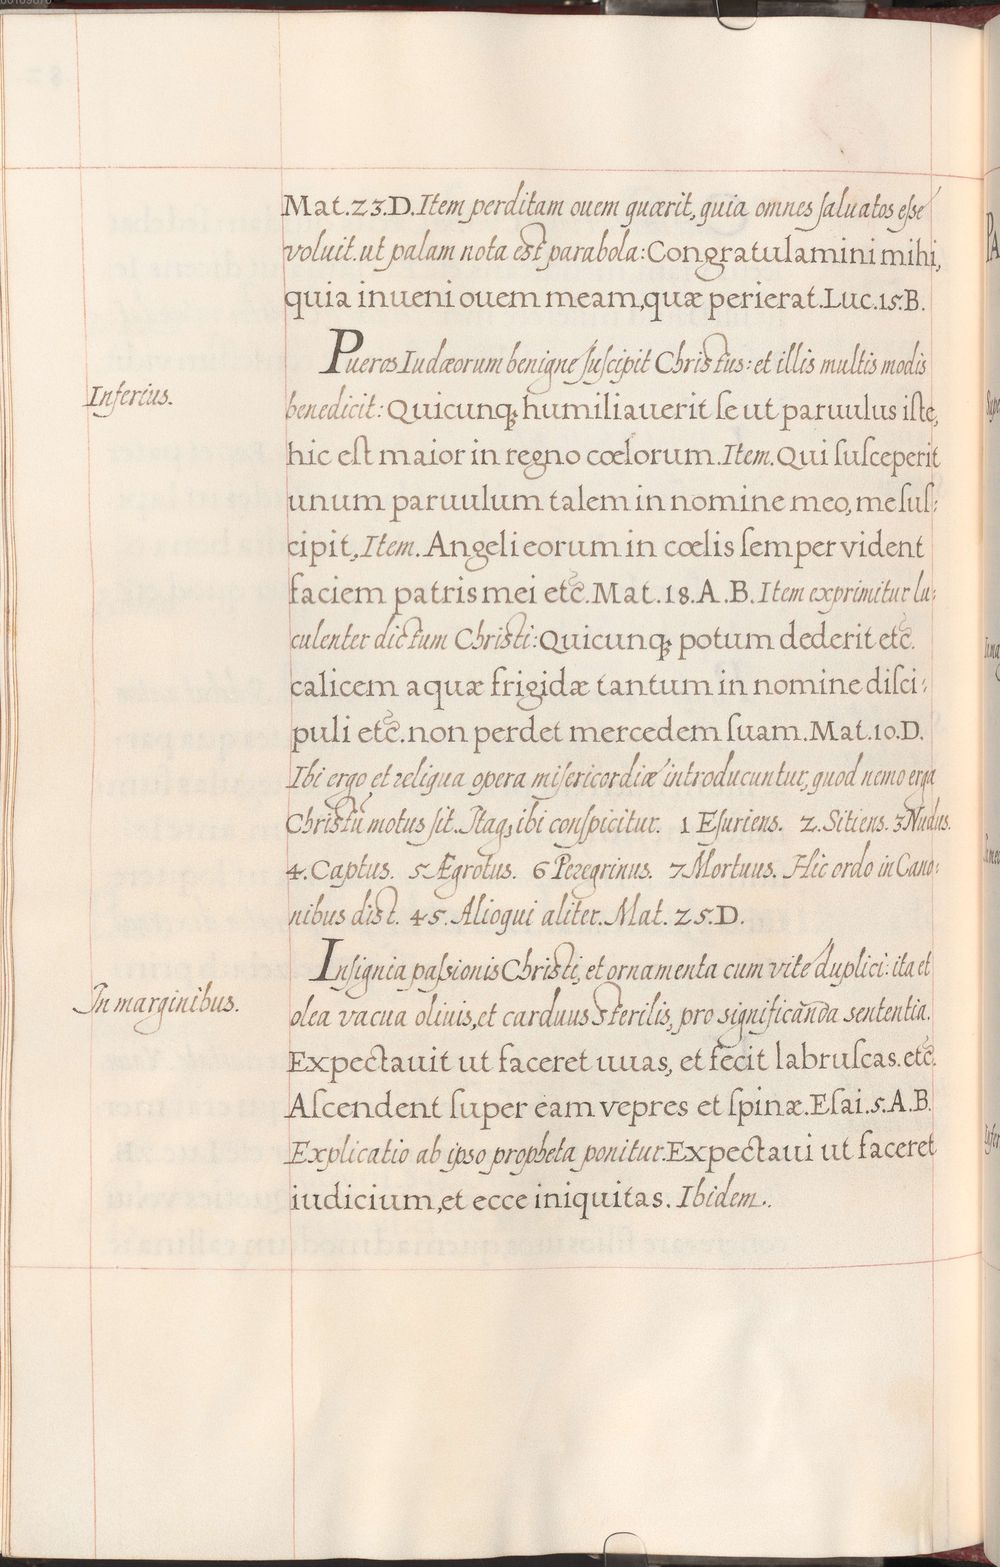 Mat.23.D. Item perditam ouem quærit, quia omnes ſaluatos eſse
voluit. ut palam nota est parabola: Congratulamini mihi,
quia inueni ouem meam, quæ perierat. Luc.15.B.
Pueros Iudæorum benigne ſuſcipit Christus: et illis multis modis
Inferius.
benedicit: Quicunqꝫ humiliauerit ſe ut paruulus iſte,
hic eſt maior in regno cœlorum. Item. Qui ſuſceperit
unum paruulum talem in nomine meo, me ſuſ:
cipit, Item. Angeli eorum in cœlis ſemper vident
faciem patris mei etc̃. Mat.18.A.B. Item exprimitur lu:
culenter dictum Christi: Quicunqꝫ potum dederit etc̃.
calicem aquæ frigidæ tantum in nomine diſci:
puli etc̃. non perdet mercedem ſuam. Mat.10.D.
Ibi ergo et reliqua opera miſericordiæ introducuntur, quod nemo erga
Christũ motus ſit. Itaqꝫ ibi conſpicitur. 1 Eſuriens. 2. Sitiens. 3 Nudus.
4. Captus. 5 Ægrotus. 6 Peregrinus. 7 Mortuus. Hic ordo in Cano:
nibus dist. 45. Alioqui aliter. Mat. 25.D.
Inſignia paſsionis Christi, et ornamenta cum vite duplici: ita et
In marginibus.
olea vacua oliuis, et carduus sterilis, pro significãnda sententia.
Expectauit ut faceret uuas, et fecit labruſcas. etc̃.
Aſcendent ſuper eam vepres et ſpinæ. Eſai.5.A.B.
Explicatio ab ipso propheta ponitur. Expectaui ut faceret
iudicium, et ecce iniquitas. Ibidem.